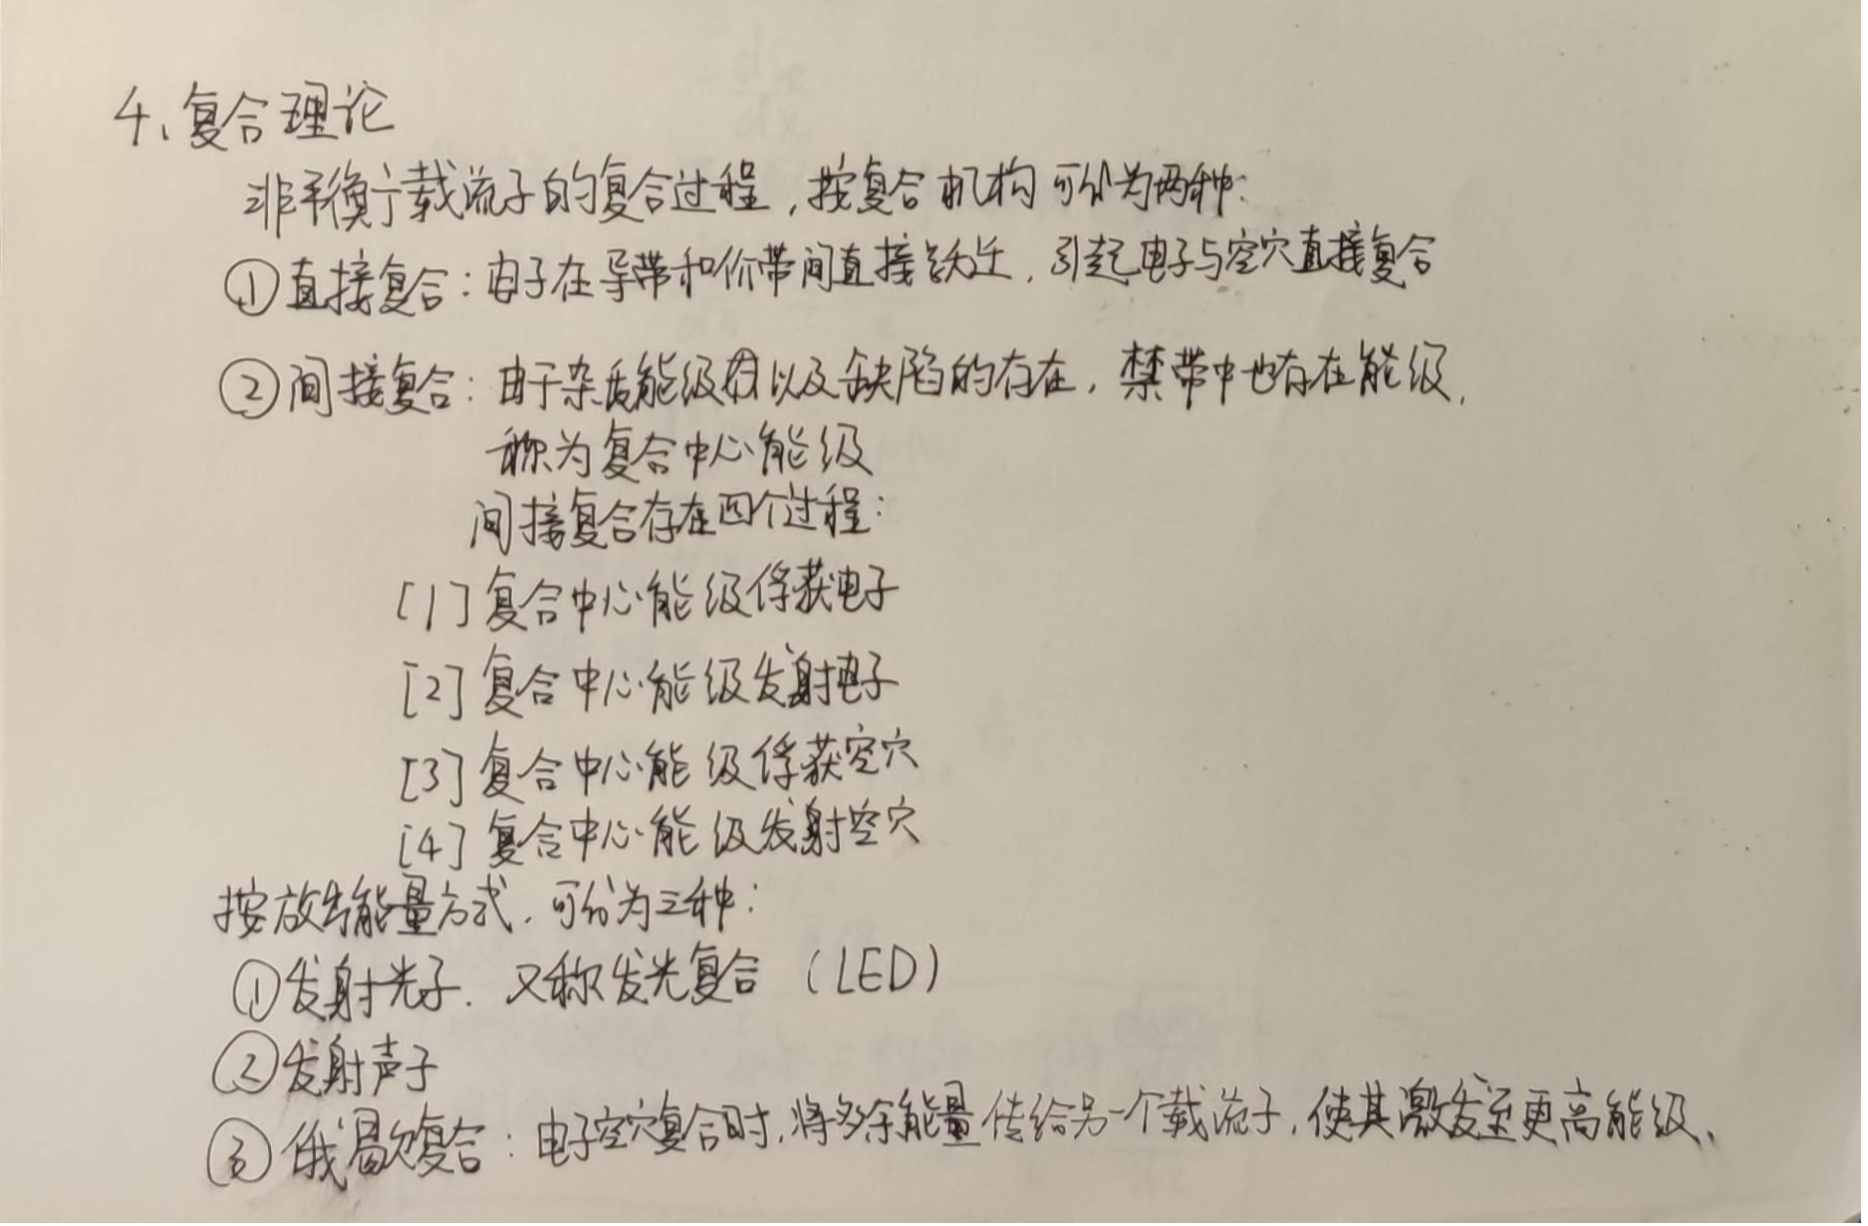 4、复合理论
非平衡载流子的复合过程,按复合机构可分为两种:
①直接复合:电子在导带和价带间直接跃迁,引起电子与空穴直接复合
②间接复合:由于杂质能级以及缺陷的存在,禁带中也存在能级,
称为复合中心能级
间接复合存在四个过程:
[1]复合中心能级俘获电子
[2]复合中心能级发射电子
[3]复合中心能级俘获空穴
[4]复合中心能级发射空穴
按放出能量方式,可分为三种:
①发射光子,又称发光复合(LED)
②发射声子
③俄歇复合:电子空穴复合时,将多余能量传给另一个载流子,使其激发至更高能级、